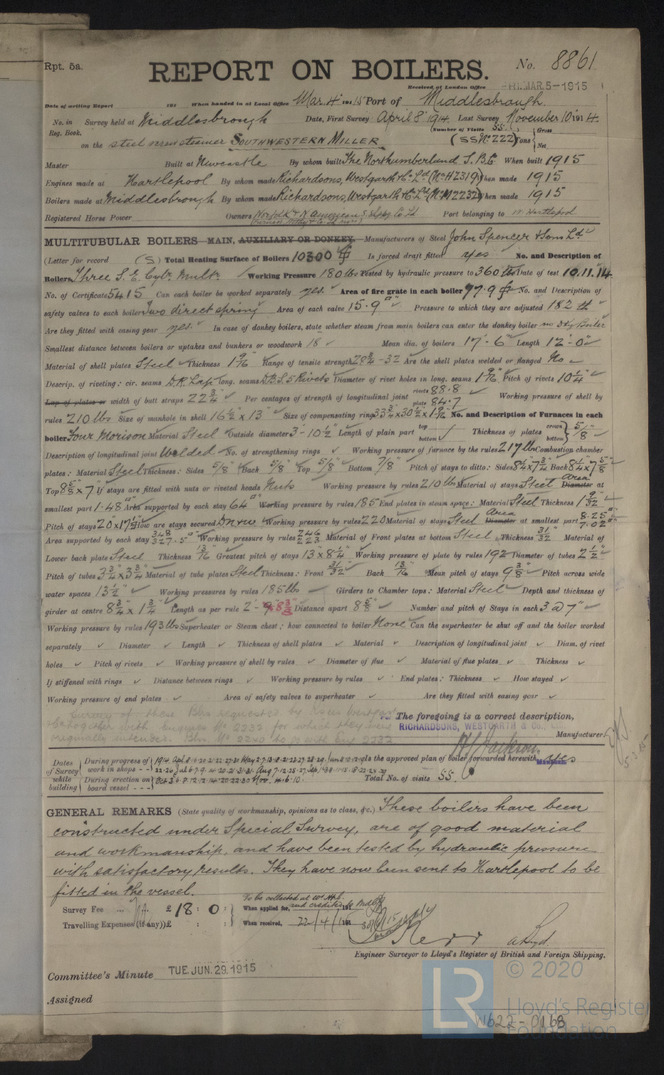 Rpt. 5a.
No. 8861
REPORT ON BOILERS.
Received at London Office MAR. 5-1915
Date of writing Report 191 When handed in at Local Office Mar 4 1915 Port of Middlesbrough
No. in Survey held at Middlesbrough Date, First Survey April 8 1914 Last Survey November 10th 1914
Reg. Book. (Number of Visits 55)
on the steel screw steamer SOUTHWESTERN MILLER (SS No 222) Tons Gross Net
Master Built at Newcastle By whom built The Northumberland S.B. Co When built 1915
Engines made at Hartlepool By whom made Richardsons, Westgarth & Co Ld (No H2319) when made 1915
Boilers made at Middlesbrough By whom made Richardsons, Westgarth & Co Ld (No M2232) when made 1915
Registered Horse Power Owners Norfolk & N American Shipg Co Ld Port belonging to W. Hartlepool
MULTITUBULAR BOILERS MAIN, AUXILIARY OR DONKEY. Manufacturers of Steel John Spencer & Sons Ld
(Letter for record (S) Total Heating Surface of Boilers 10300 Is forced draft fitted yes No. and Description of
Boilers Three S.E. Cylr Mult Working Pressure 180 lbs Tested by hydraulic pressure to 360 lbs Date of test 10.11.14
No. of Certificate 5415 Can each boiler be worked separately yes Area of fire grate in each boiler 77.9 No. and Description of
safety valves to each boiler Two direct spring Area of each valve 15.9" Pressure to which they are adjusted 182 lb
Are they fitted with easing gear yes In case of donkey boilers, state whether steam from main boilers can enter the donkey boiler
Smallest distance between boilers or uptakes and bunkers or woodwork 18 Mean dia. of boilers 17'-6" Length 12'-0"
Material of shell plates Steel Thickness Range of tensile strength 28¾-32 Are the shell plates welded or flanged No
Descrip. of riveting: cir. seams D.R. Lap long. seams D.B.S. 5 Rivets Diameter of rivet holes in long. seams Pitch of rivets 10¼
Lap of plates or width of butt straps 22¾ Per centages of strength of longitudinal joint rivets 88.8 plate 84.7 Working pressure of shell by
rules 210 lbs Size of manhole in shell 16½ x 13" Size of compensating ring No. and Description of Furnaces in each
boiler Four Morison Material Steel Outside diameter 3'-10½ Length of plain part top bottom Thickness of plates crown bottom 5/8
Description of longitudinal joint Welded No. of strengthening rings Working pressure of furnace by the rules 217 lbs Combustion chamber
plates: Material Steel Thickness: Sides 5/8 Back 5/8 Top 5/8 Bottom 7/8 Pitch of stays to ditto: Sides Back
Top If stays are fitted with nuts or riveted heads Nuts Working pressure by rules 210 lbs Material of stays Steel Area Diameter at
smallest part 1.48 Area supported by each stay 64" Working pressure by rules 185 End plates in steam space: Material Steel Thickness
Pitch of stays 20 x 17½ How are stays secured D.N. & W. Working pressure by rules 220 Material of stays Steel Area Diameter at smallest part
Area supported by each stay Working pressure by rules Material of Front plates at bottom Steel Thickness Material of
Lower back plate Steel Thickness Greatest pitch of stays 13 x 8¼ Working pressure of plate by rules 192 Diameter of tubes 2½
Pitch of tubes 3¾ x 3¾ Material of tube plates Steel Thickness: Front Back Mean pitch of stays 9⅜ Pitch across wide
water spaces 13½ Working pressures by rules 185 lbs Girders to Chamber tops: Material Steel Depth and thickness of
girder at centre 8¾ x 1¾ Length as per rule Distance apart 8⅝ Number and pitch of Stays in each 3 @ 7"
Working pressure by rules 193 lbs Superheater or Steam chest; how connected to boiler None Can the superheater be shut off and the boiler worked
separately Diameter Length Thickness of shell plates Material Description of longitudinal joint Diam. of rivet
holes Pitch of rivets Working pressure of shell by rules Diameter of flue Material of flue plates Thickness
If stiffened with rings Distance between rings Working pressure by rules End plates: Thickness How stayed
Working pressure of end plates Area of safety valves to superheater Are they fitted with easing gear
The foregoing is a correct description,
RICHARDSONS, WESTGARTH & Co.,
Manufacturer.
Dates of Survey while building
During progress of work in shops
During erection on board vessel
Is the approved plan of boiler forwarded herewith
Total No. of visits 55.
GENERAL REMARKS (State quality of workmanship, opinions as to class, &c.) These boilers have been
constructed under Special Survey, are of good material
and workmanship, and have been tested by hydraulic pressure
with satisfactory results. They have now been sent to Hartlepool to be
fitted in the vessel.
Survey Fee £ 18 : 0 : When applied for,
Travelling Expenses (if any) £ When received, 22/4/191
Engineer Surveyor to Lloyd's Register of British and Foreign Shipping.
Committee's Minute TUE. JUN. 29. 1915
Assigned
© 2020
LR
Lloyd's Register
Foundation
W622-0168